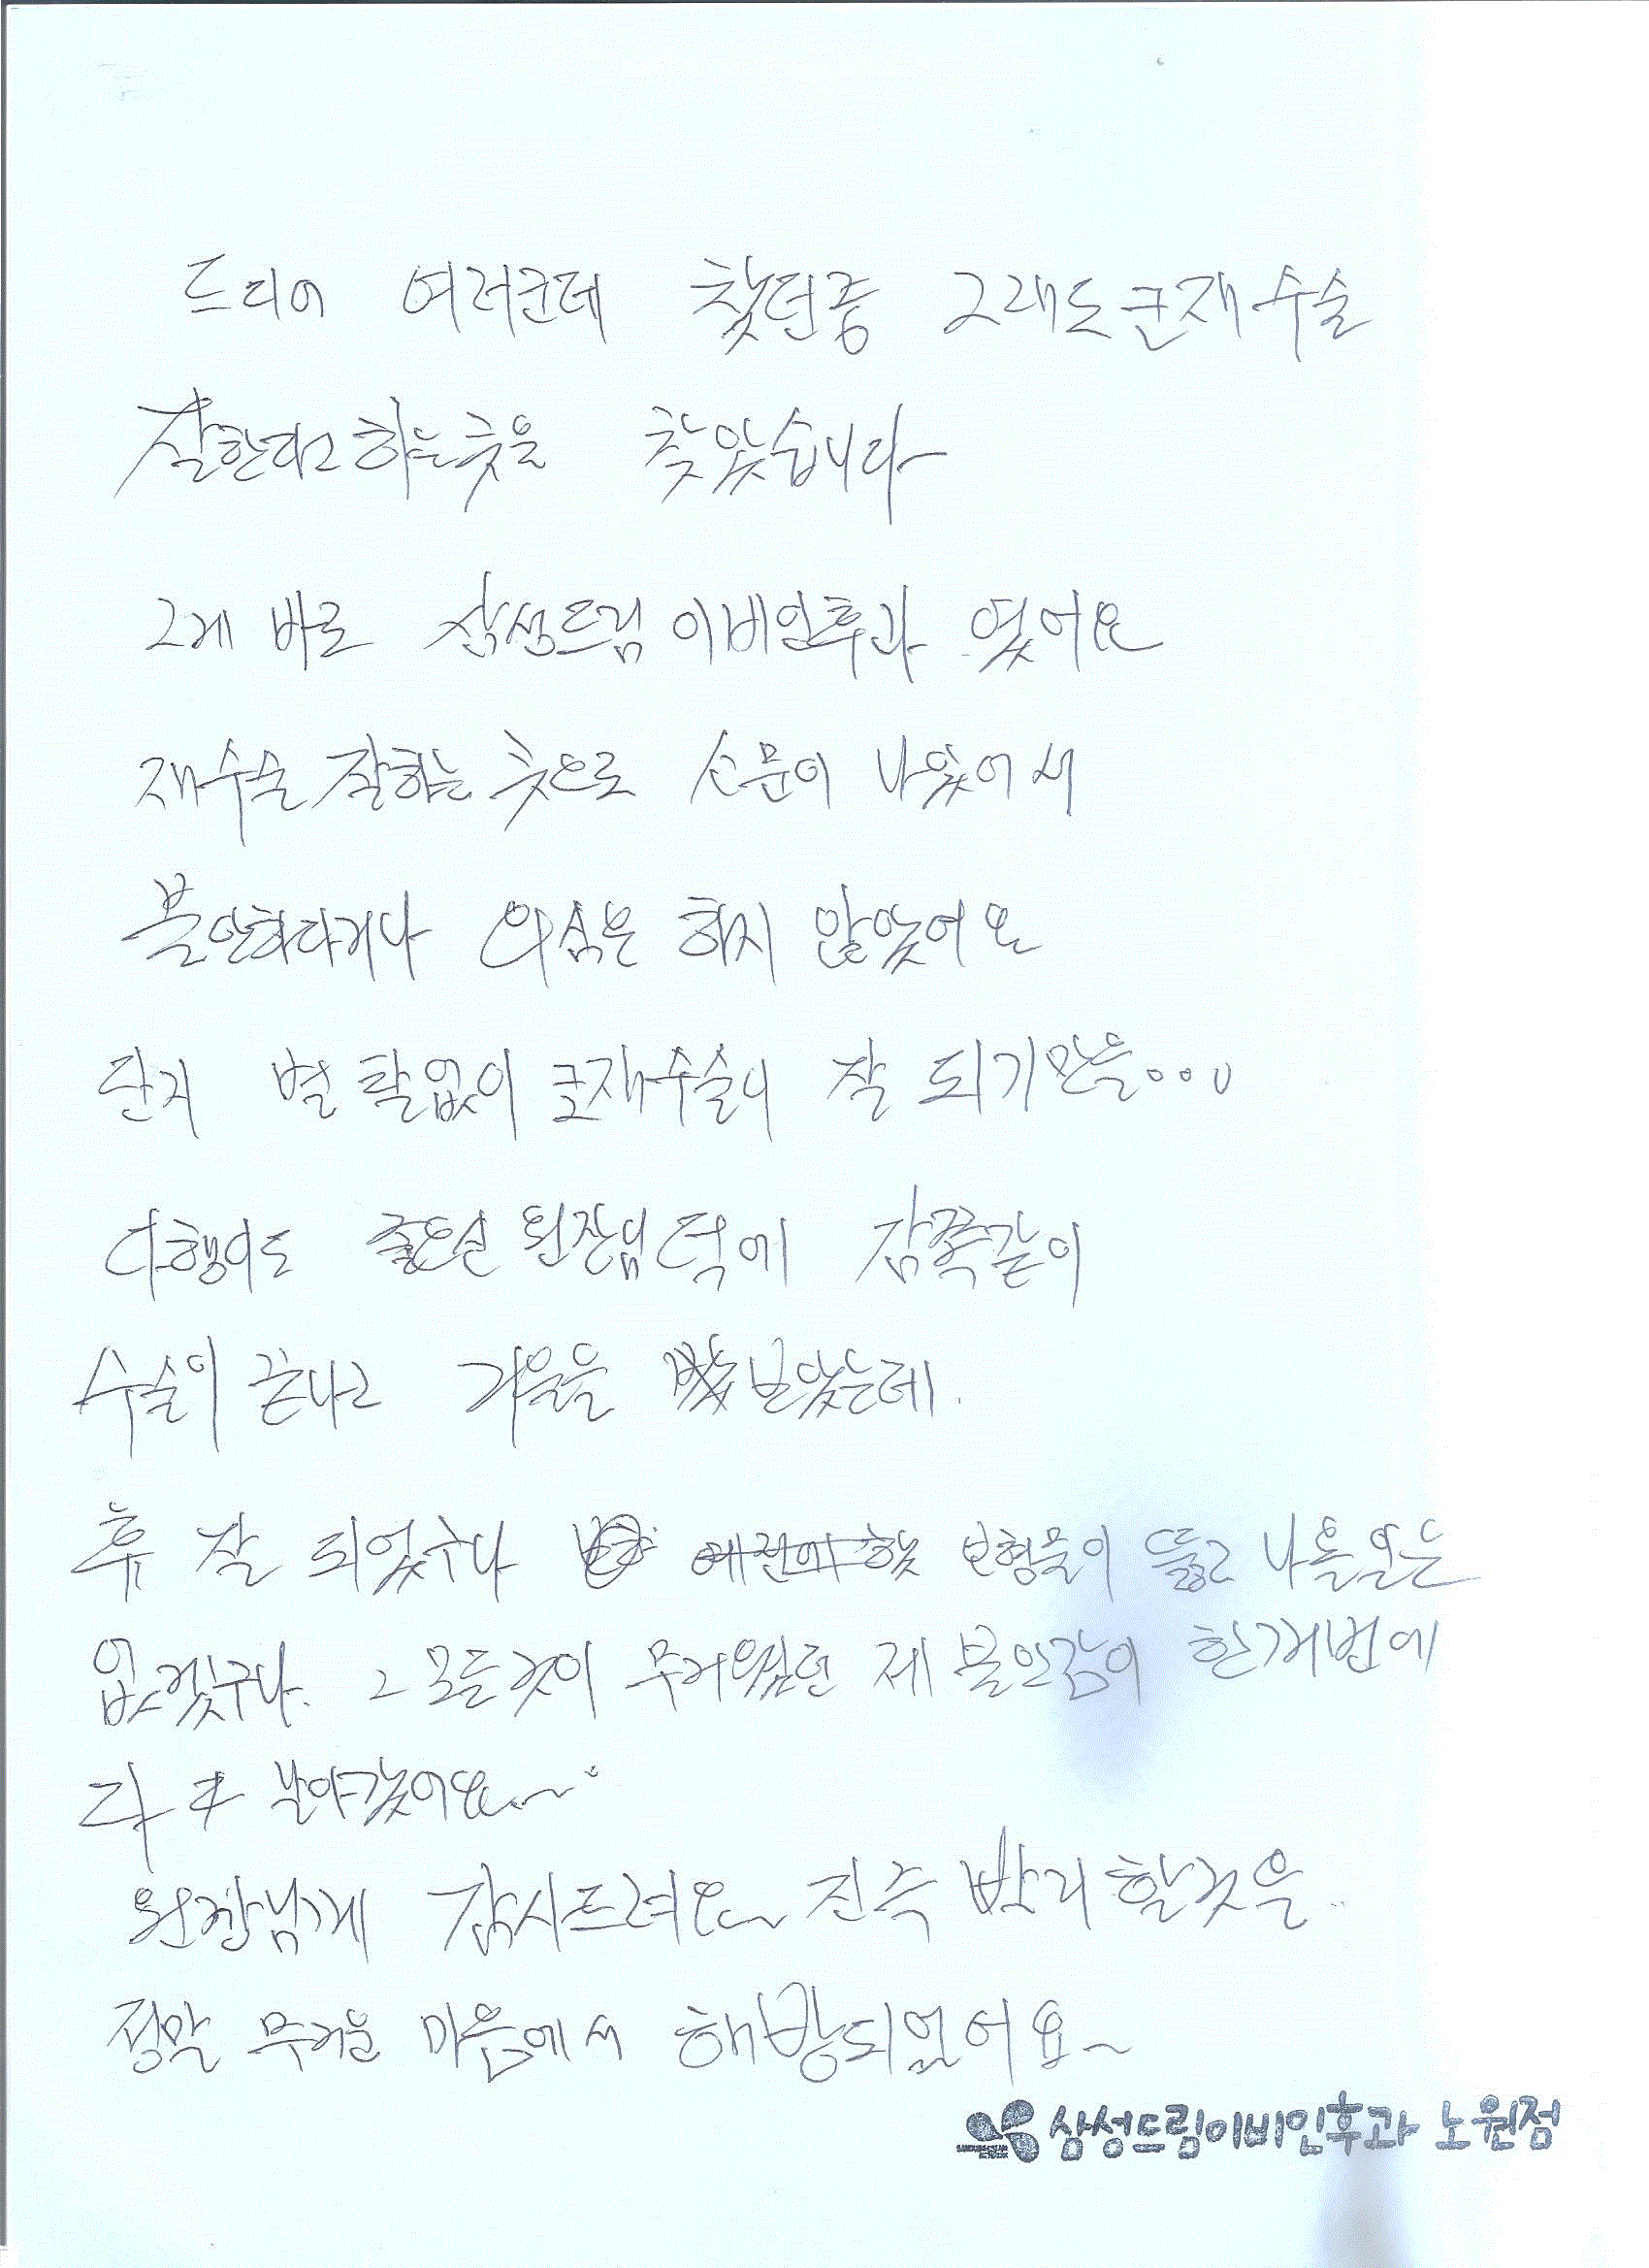 드디어 여러군데 찾던중 그래도 코재수술
잘한다고 하는 곳을 찾았습니다
그게 바로 삼성드림 이비인후과 였어요
재수술 잘하는 곳으로 소문이 나있어서
불안하다거나 의심은 하지 않았어요
단지 별 탈없이 코재수술이 잘 되기만을...
다행이도 좋으신 원장님 덕에 감쪽같이
수술이 끝나고 거울을 보았는데.
휴 잘 되었구나 예전에 했 보형물이 뚫고 나올일은
없겠구나. 그 모든것이 무거웠던 제 불안감이 한꺼번에
다 날아갔어요~
원장님께 감사드려요~ 진즉 빨리 할것을..
정말 무거운 마음에서 해방되었어요~
삼성드림이비인후과 노원점